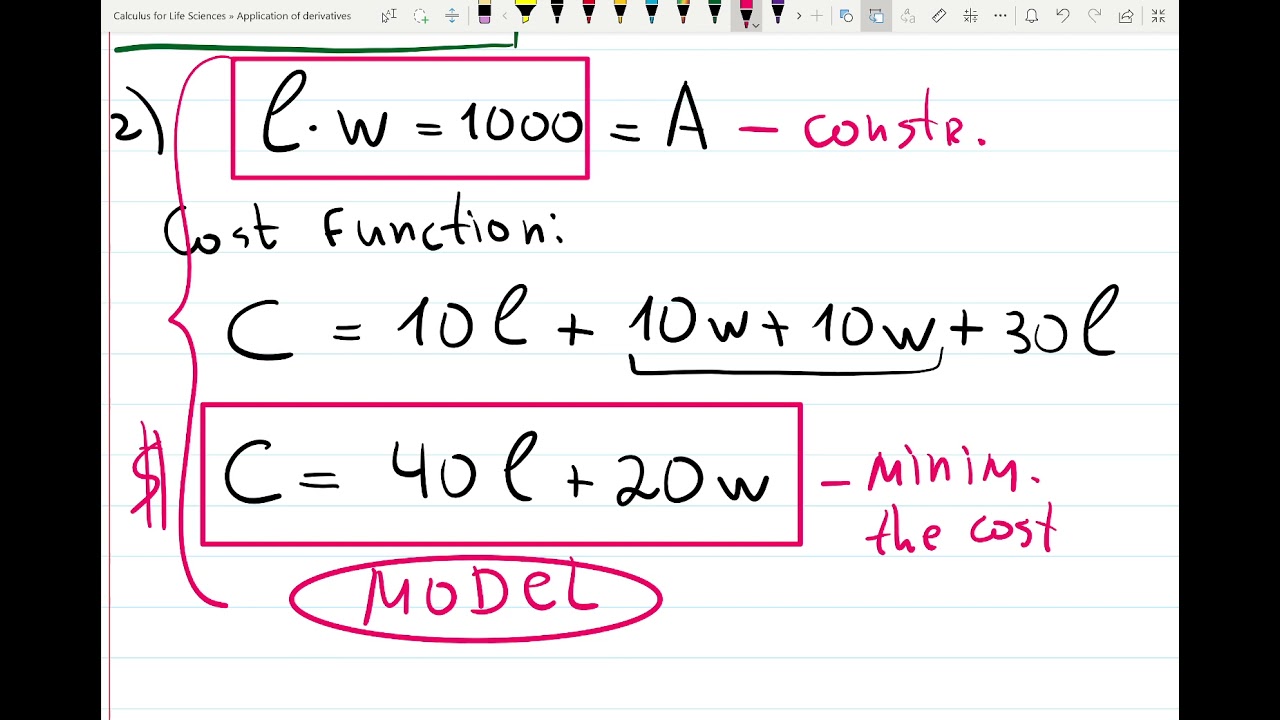 Calculus for Life Sciences » Application of derivatives
2) l · w = 1000 = A – constr.
Cost Function:
C = 10l + 10w + 10w + 30l
$ C = 40l + 20w – Minim.
the cost
MODEL